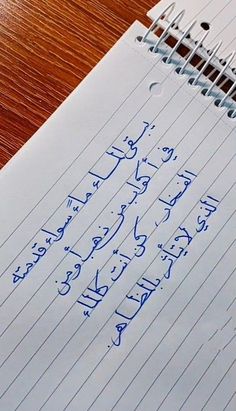 يبقى الماء ماءً سواء قدمته
في أكواب من ذهب أو من
الفخار، كن أنت كالماء
الذي لا يتأثر بالمظاهر.